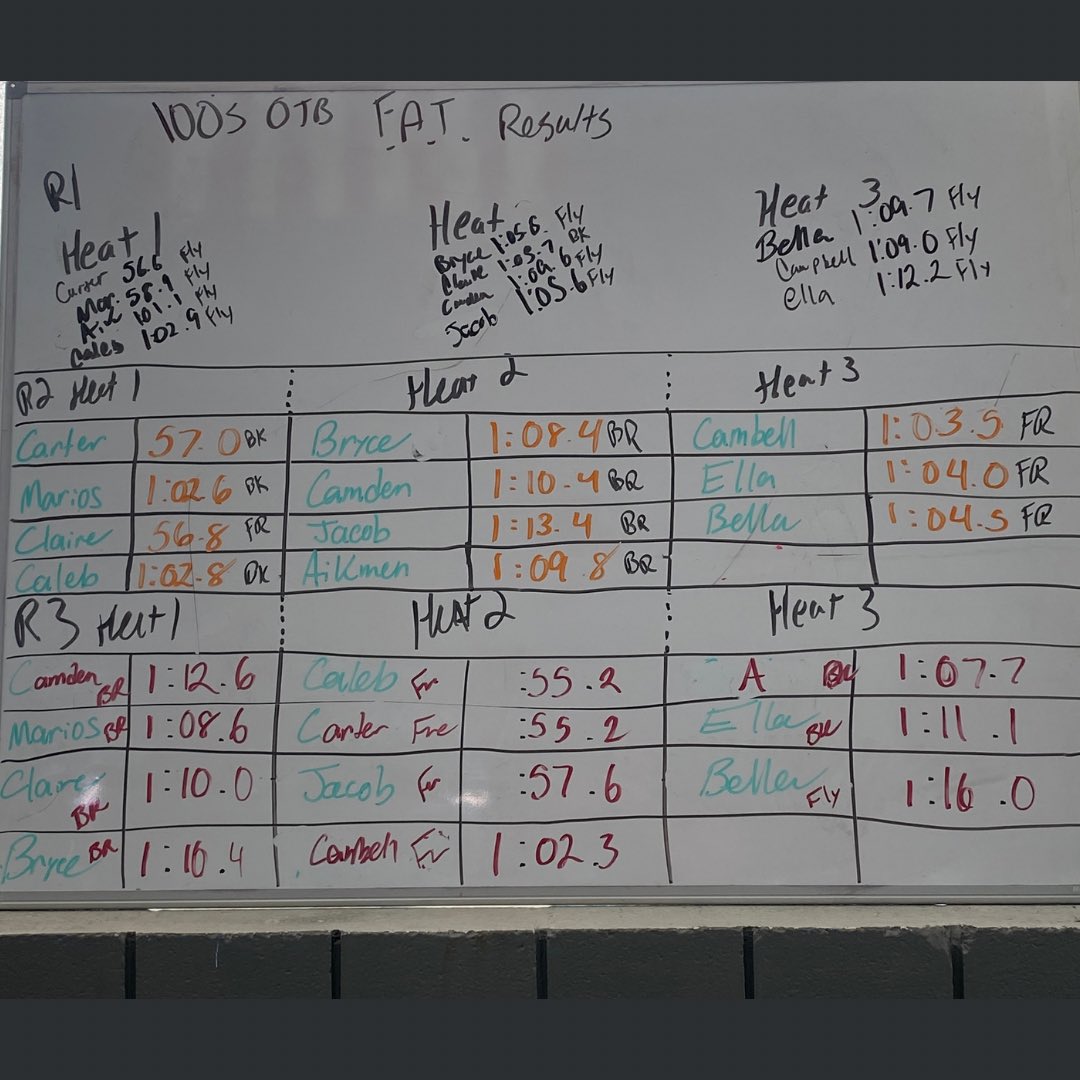 100S OTB F.A.T. Results
R1
Heat 1
Carter 56.6 Fly
Mar. 58.9 Fly
101.1 Fly
Caleb 1:02.9 Fly
Heat
Bryce 1:05.6. Fly
Claire 1:05.7 BK
Camden 1:09.6 Fly
Jacob 1:05.6 Fly
Heat 3
Bella 1:09.7 Fly
Campbell 1:09.0 Fly
Ella 1:12.2 Fly
R2 Heat 1 Heat 2 Heat 3
Carter 57.0 BK Bryce 1:08.4 BR Cambell 1:03.5 FR
Marios 1:02.6 BK Camden 1:10.4 BR Ella 1:04.0 FR
Claire 56.8 FR Jacob 1:13.4 BR Bella 1:04.5 FR
Caleb 1:02.8 BK Aikmen 1:09.8 BR
R3 Heat 1 Heat 2 Heat 3
Camden BR 1:12.6 Caleb Fr :55.2 A 1:07.7
Marios BR 1:08.6 Carter Fre :55.2 Ella 1:11.1
Claire BR 1:10.0 Jacob Fr :57.6 Bella Fly 1:16.0
Bryce BR 1:10.4 Cambell Fr 1:02.3